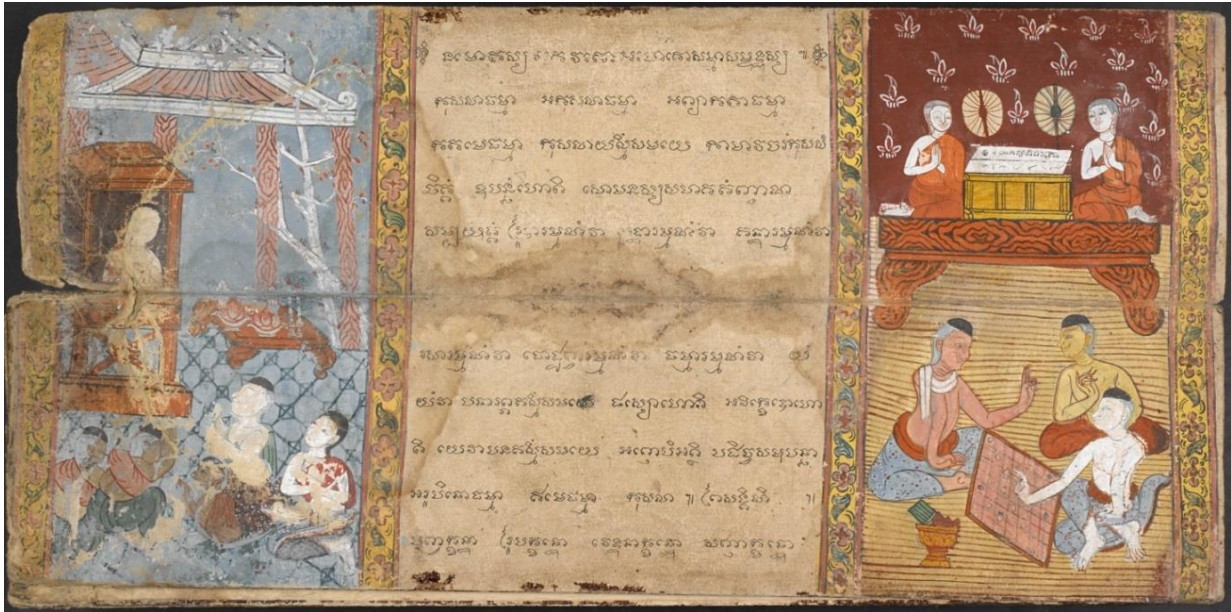 នមោតស្ស ភគវតោ អរហតោសម្មាសម្ពុទ្ធស្ស ៕
កុសលាធម្មា អកុសលាធម្មា អព្យាកតាធម្មា
កតមេធម្មា កុសលាយស្មឹសមយេ កាមាវចរំកុសលំ
ចិត្តំ ឧប្បន្នំហោតិ សោមនស្សសហគតំញាណ
សម្បយុត្តំ រូបារម្មណំវា សទ្ទារម្មណំវា គន្ធារម្មណំវា
រសារម្មណំវា ផោដ្ឋព្វារម្មណំវា ធម្មារម្មណំវា យំ
យំវា បនារព្ភតស្មឹសមយេ ផស្សោហោតិ អវិក្ខេបោហោ
តិ យេវាបនតស្មឹសមយេ អញ្ញេបិអត្ថិ បដិច្ចសមុប្បន្នា
អរូបិនោធម្មា ឥមេធម្មា កុសលា ៕ ព្រសង្គិណី ៕
បញ្ចក្ខន្ធា រូបក្ខន្ធោ វេទនាក្ខន្ធោ សញ្ញាក្ខន្ធោ